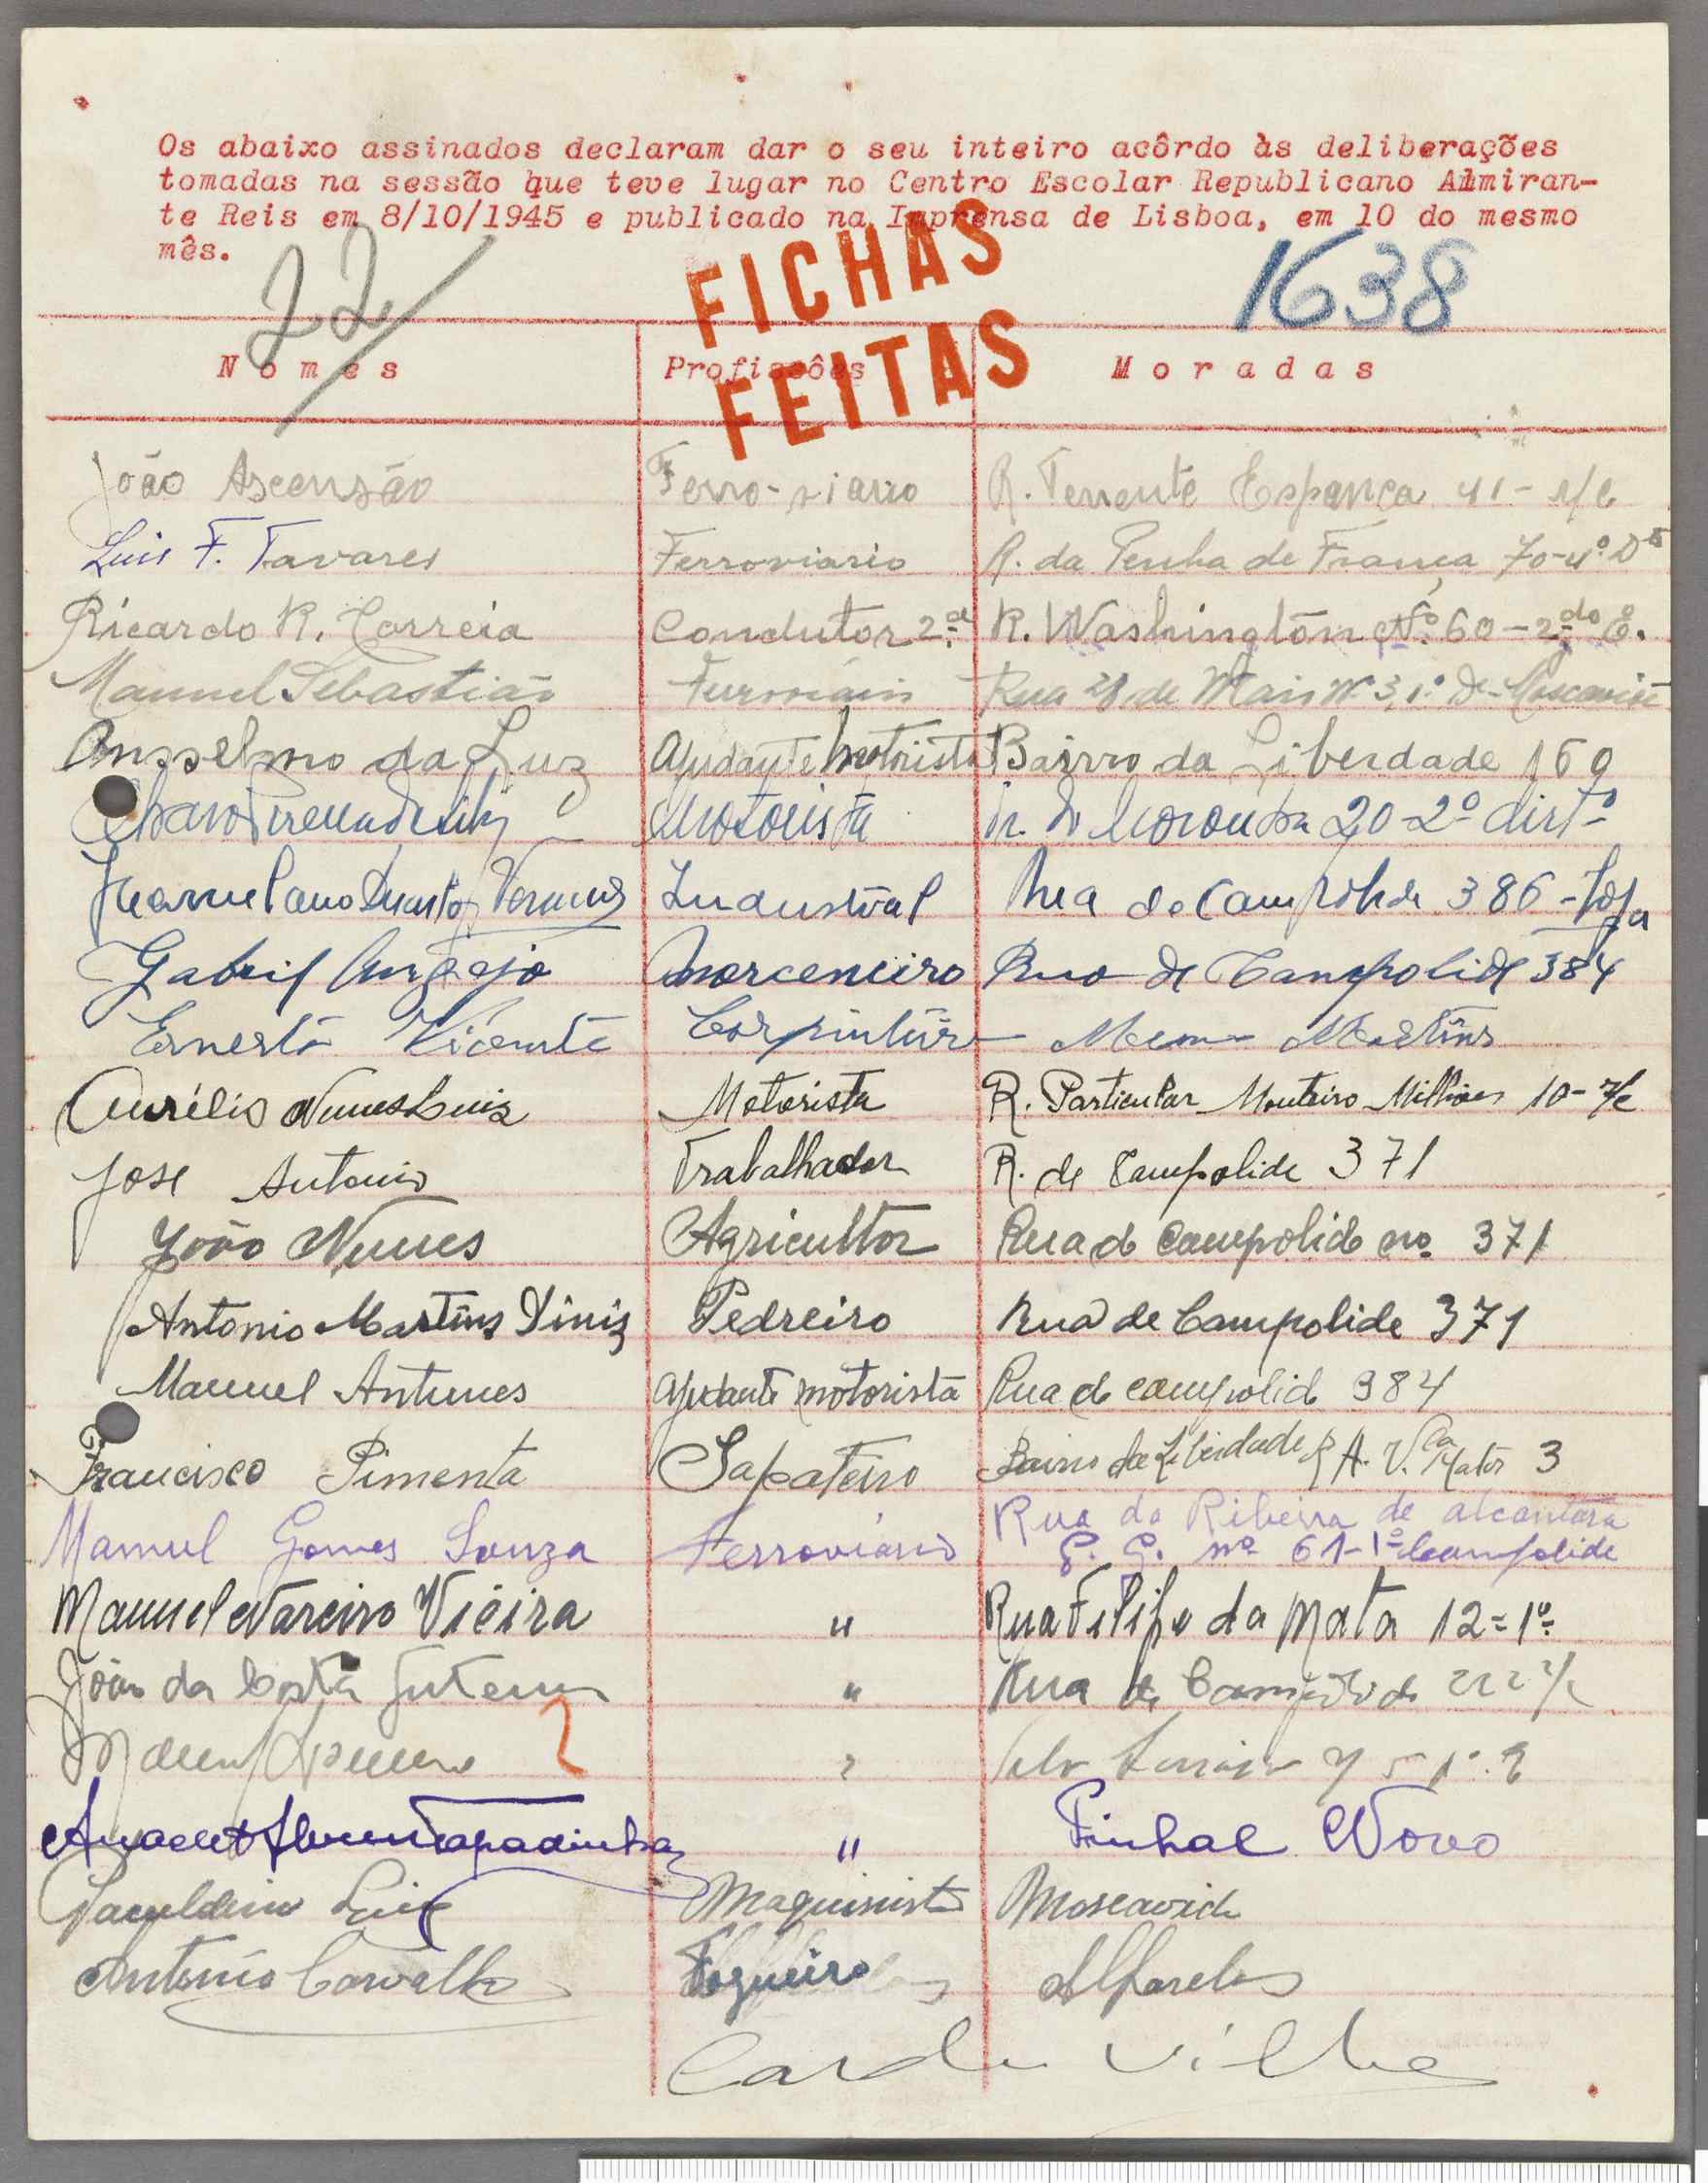 Os abaixo assinados declaram dar o seu inteiro acôrdo às deliberações
tomadas na sessão que teve lugar no Centro Escolar Republicano Almiran-
te Reis em 8/10/1945 e publicado na Imprensa de Lisboa, em 10 do mesmo
mês.
22
FICHAS
FEITAS
1638
Nomes Profissões Moradas
João Ascensão Ferro-viario R. Tenente Espanca 41- r/c
Luis F. Tavares Ferroviario R. da Penha de França 70-4º Dtº
Ricardo R. Correia Condutor 2ª cl R. Washington Nº 60-2do E.
Manuel Sebastião Ferroviário Rua 28 de Maio Nº 3, 1º D- Moscavide
Ansselmo da Luz Ajudante Motorista Bairro da Liberdade 169
Motorista 20-2º dirtº
Industrial Rua de Campolide 386-Loja
Gabril Araujo Marceneiro Rua de Campolide 384
Ernesto Vicente Carpinteiro Mem Martins
Aurélio Nunes Luiz Motorista R. Particular Monteiro Milhões 10-r/c
Jose Antonio Trabalhador R. de Campolide 371
João Nunes Agricultor Rua de Campolide no. 371
Antonio Martins Diniz Pedreiro Rua de Campolide 371
Manuel Antunes Ajudante motorista Rua de campolid 384
Francisco Pimenta Sapateiro Bairro da Liberdade R A. V. 3
Manuel Gomes Souza Ferroviário Rua da Ribeira de alcantara
nº 61-1º Campolide
Manuel Nareiro Vieira " Rua Filipe da Mata 12=1º
João da Costa " Rua de Campolide 222 r/c
Manuel "
" Pinhal Novo
Luiz Maquinista Moscavide
António Carvalho Fogueiro Alfarelos